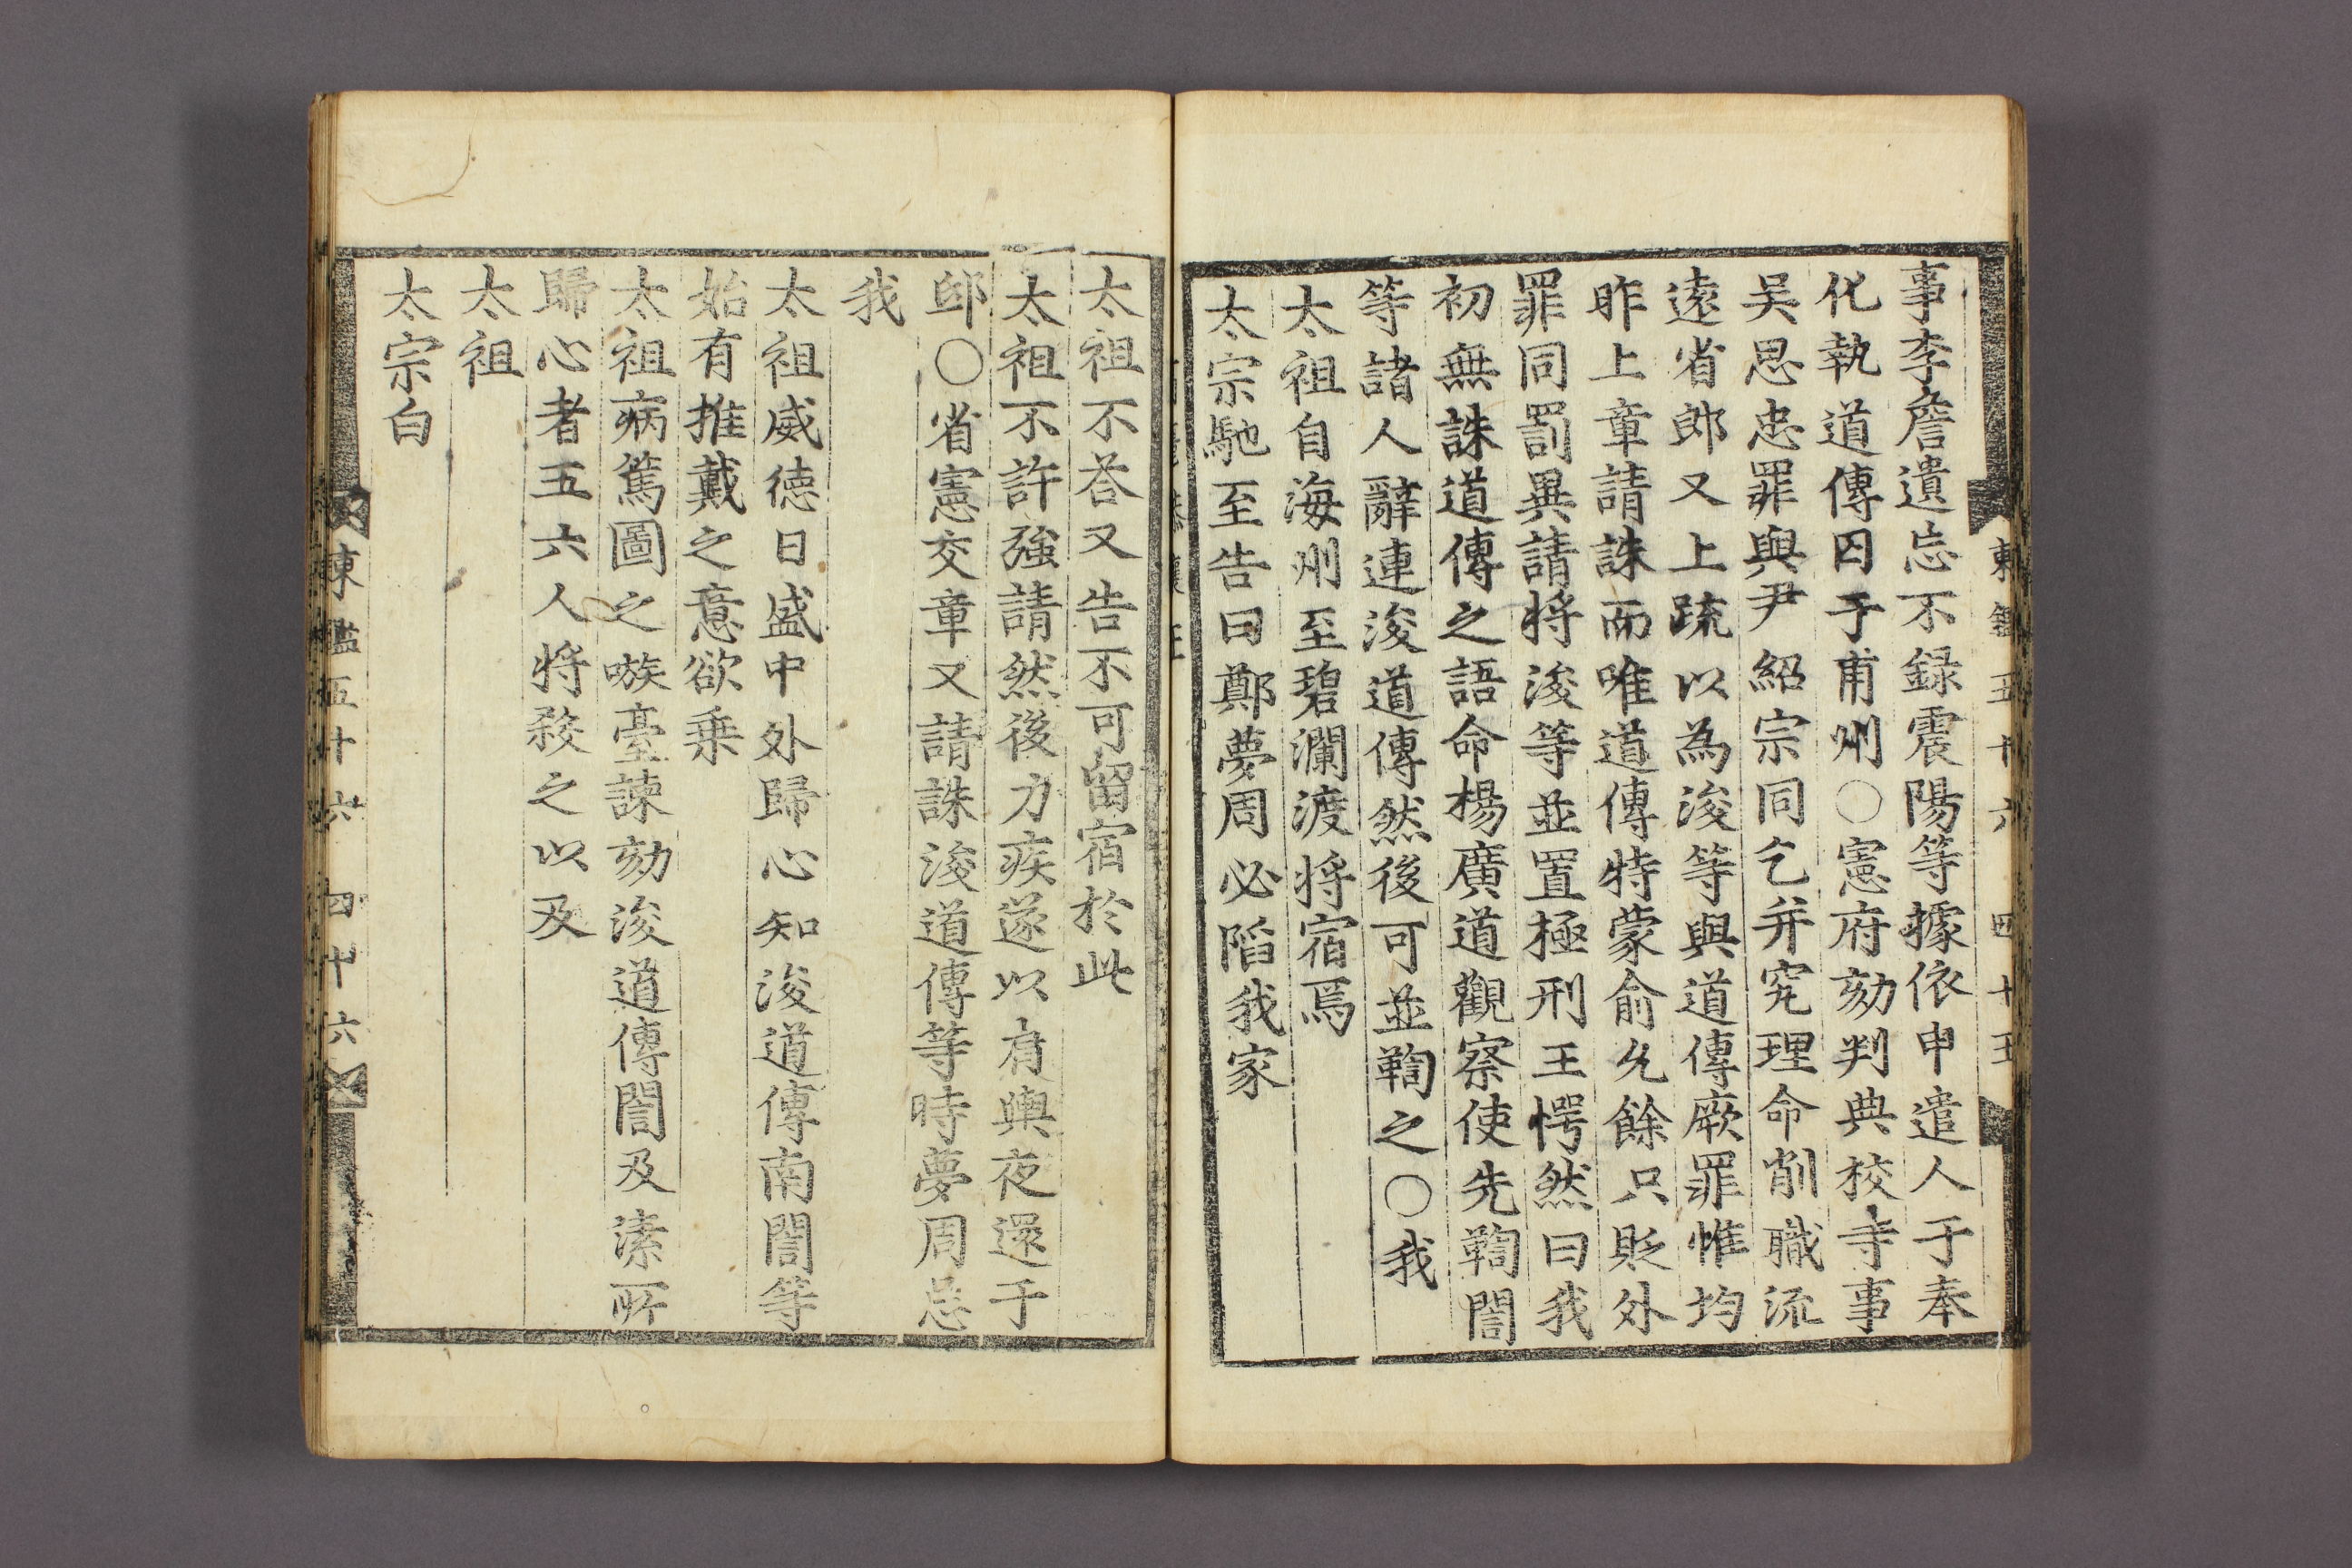 事李詹遺忘不録震陽等據依申遣人于奉
化執道傳囚于甫州○憲府劾判典校寺事
吴思忠罪與尹紹宗同乞并究理命削職流
遠省郎又上疏以為浚等與道傳厥罪惟均
昨上章請誅而唯道傳特蒙俞允餘只貶外
罪同罰異請将浚等並置極刑王愕然曰我
初無誅道傳之語命楊廣道觀察使先鞫誾
等諸人辭連浚道傳然後可並鞫之○我
太祖自海州至碧瀾渡将宿焉
太宗馳至告曰鄭夢周必陷我家
東鑑五十六 四十五
太祖不荅又告不可留宿於此
太祖不許強請然後力疾遂以肩輿夜還于
邸○省憲交章又請誅浚道傳等時夢周忌
我
太祖威徳日盛中外歸心知浚道傳南誾等
始有推戴之意欲乗
太祖病篤圖之嗾臺諫劾浚道傳誾及素所
歸心者五六人将殺之以及
太祖
太宗白
東鑑五十六 四十六